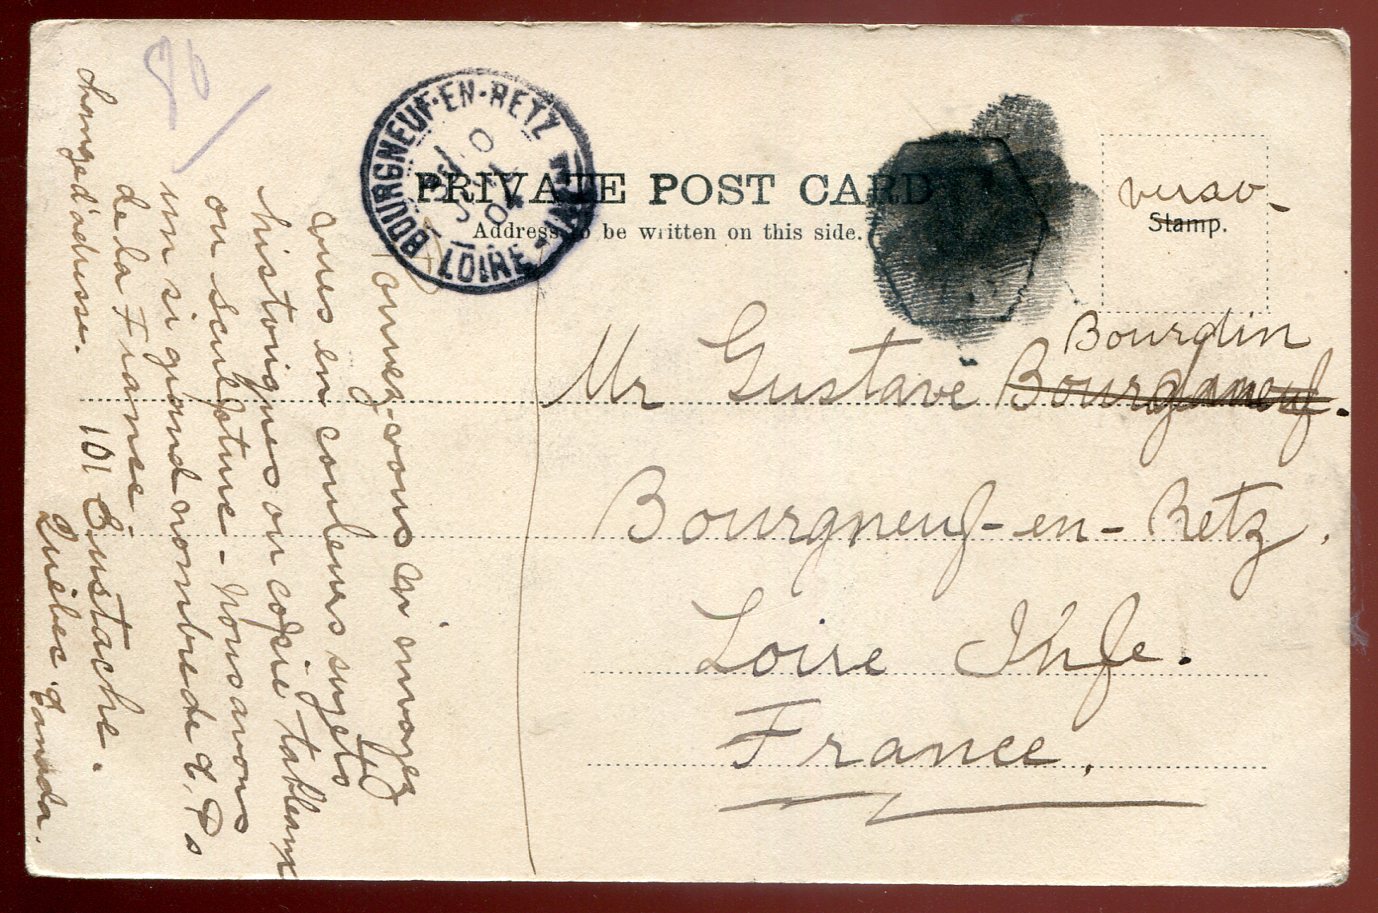 PRIVATE POST CARD
Address to be written on this side.
BOURGNEUF-EN-RETZ
LOIRE-INFRE
verso-
Stamp.
Bourdin
Mr Gustave Bourgneuf.
Bourgneuf-en-Retz,
Loire Infe.
France,
vous en couleurs sujets
historiques ou copie tableaux
ou sculpture - Nous avons
un si grand nombre de C.Ps
de la France.
Change d'adresse. 101 Eustache.
Québec. Canada.